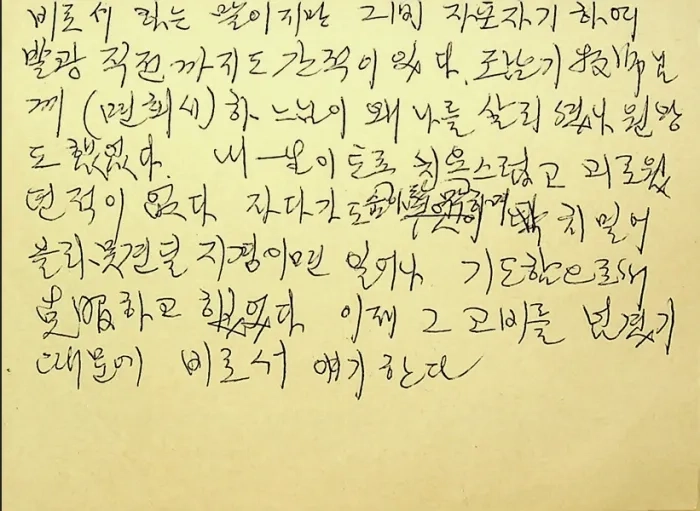 비로세 하는 말이지만 그때 자포자기하여
발광 직전까지도 간적이 있다. 조남기 牧師님
께 (면회시) 하느님이 왜 나를 살리셨나 원망
도 했었다. 내 一生이 토록 치욕스럽고 괴로웠
던적이 없다 자다가도 치밀어
올라 못견딜 지경이면 일어나 기도함으로써
克服하고 했었다 이제 그 고비를 넘겼기
때문에 비로서 얘기한다